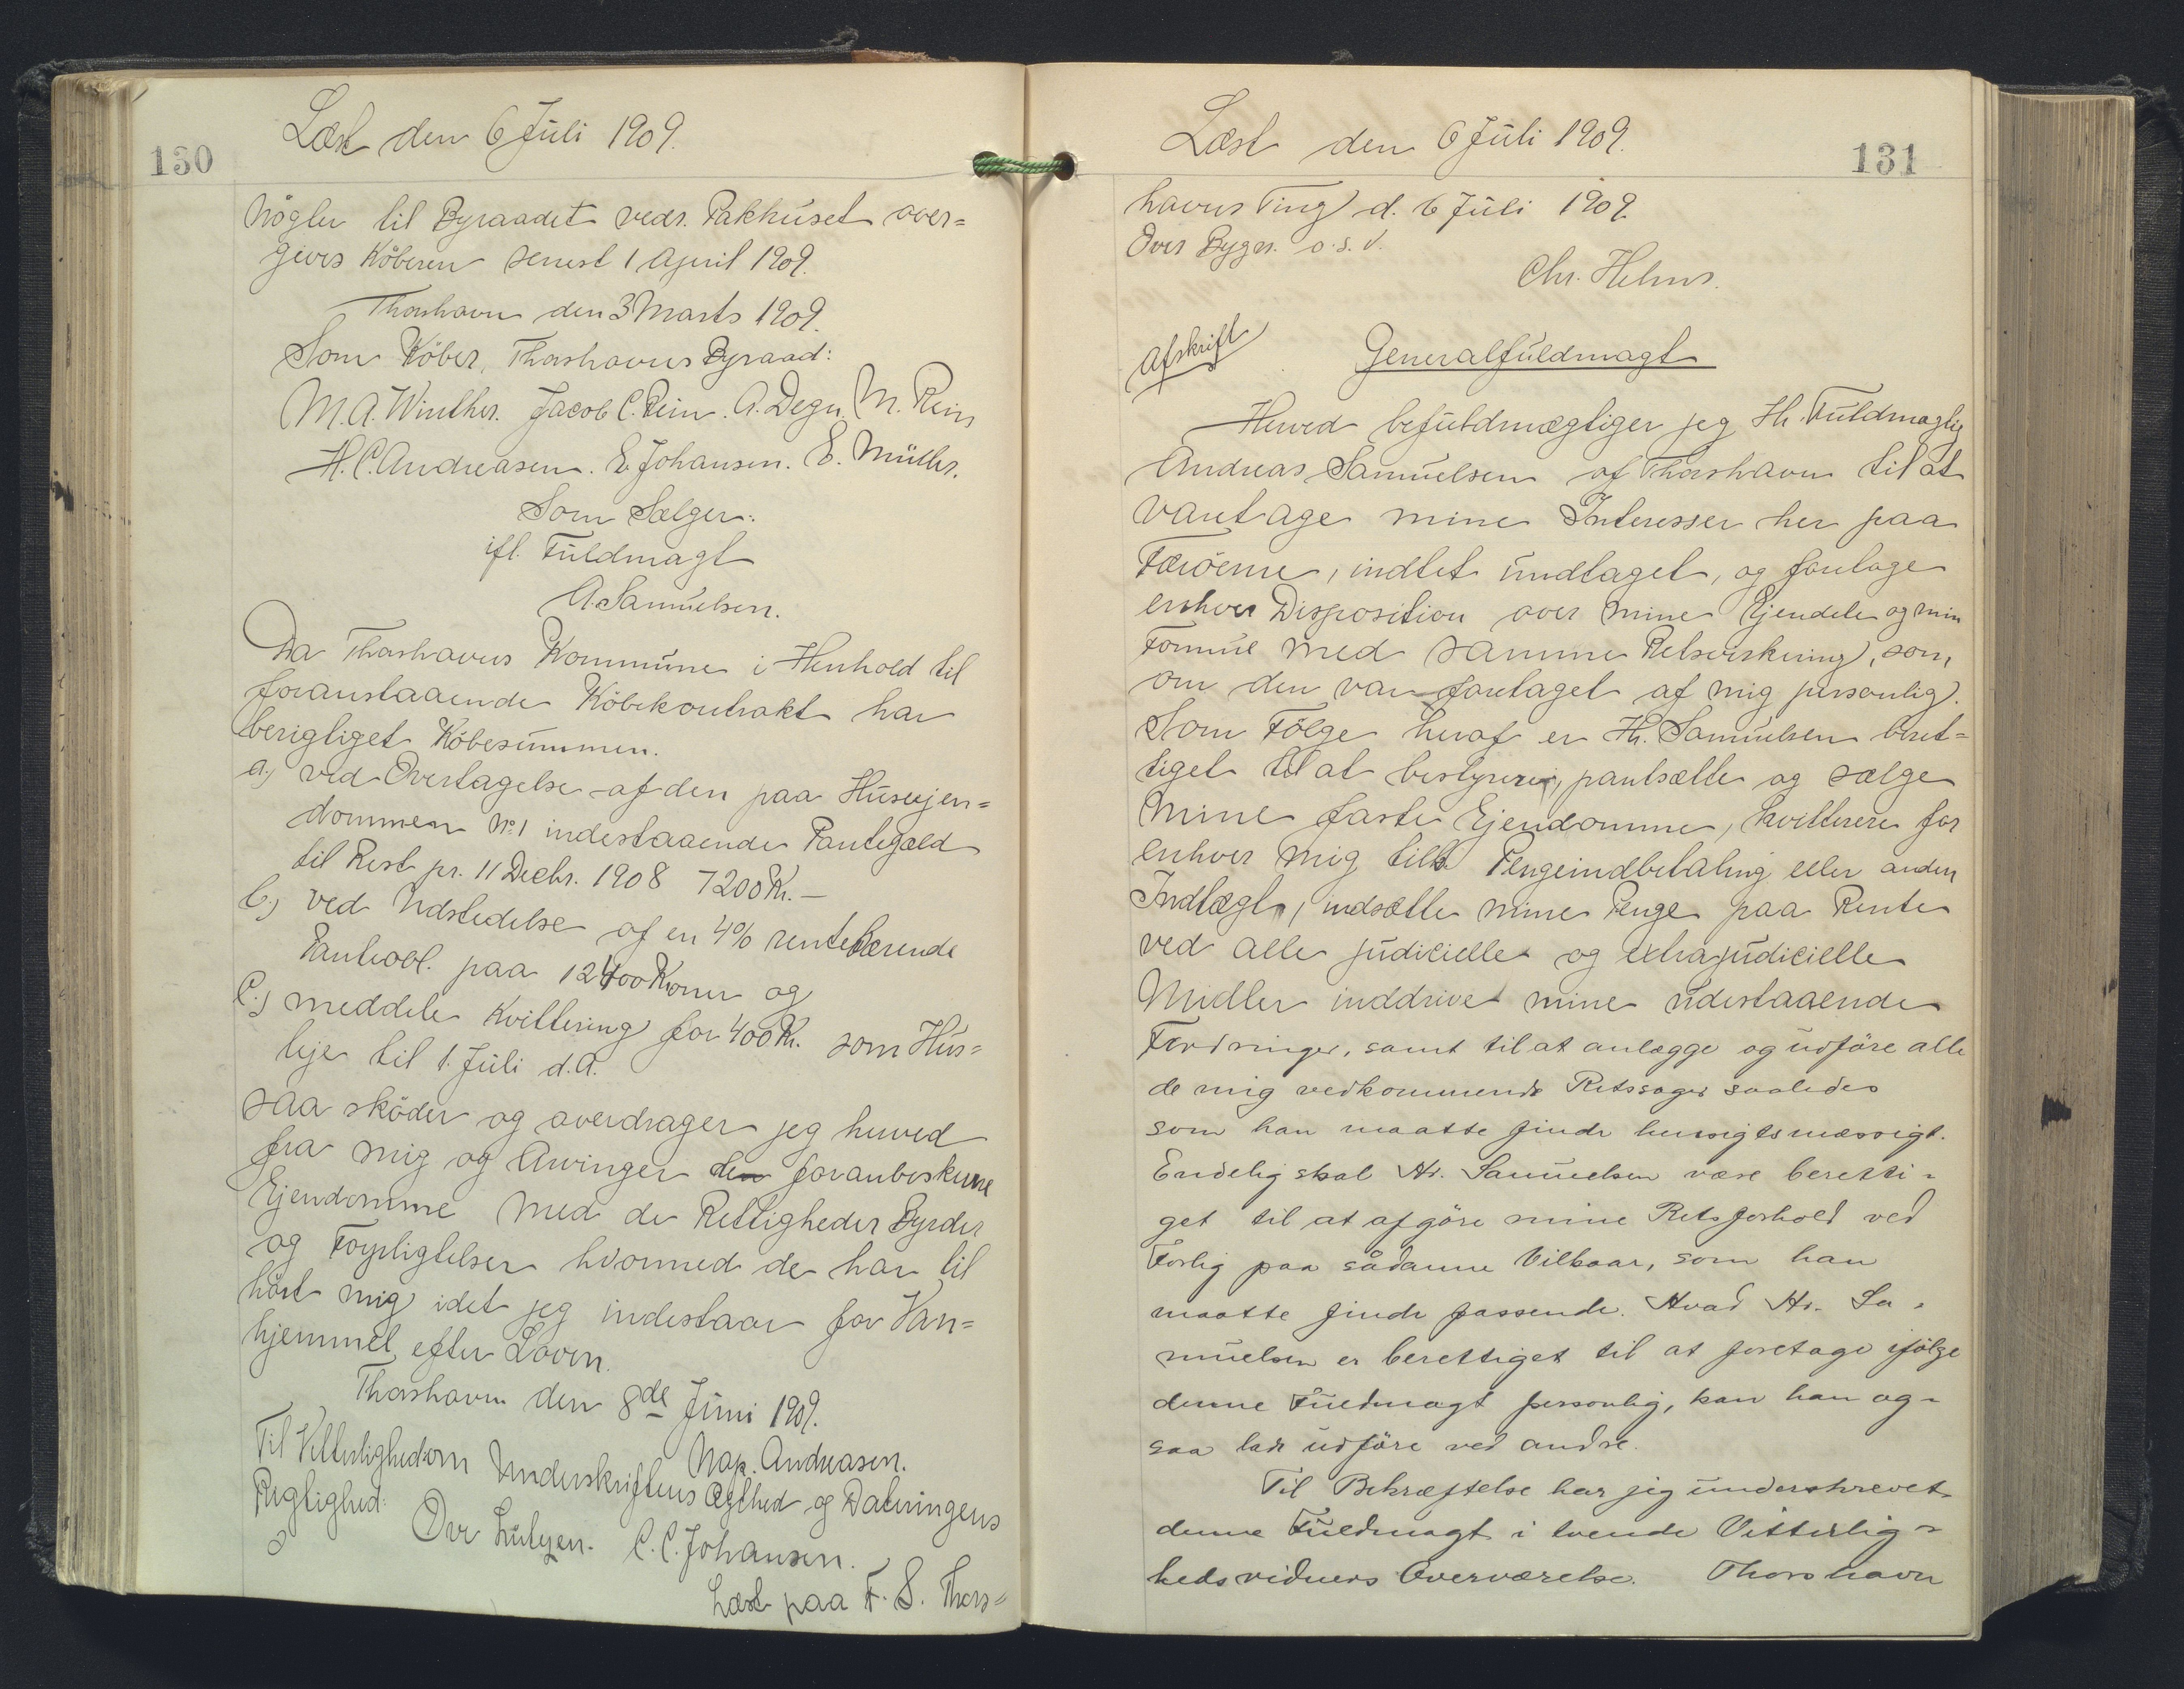 130
Læst den 6 Juli 1909.
Nögler til Byraadet vedr. Pakhuset over=
gives Köberen senest 1 April 1909.
Thorshavn den 3 Marts 1909.
Som Köber, Thorshavns Byraad:
M. A. Winther. Jacob C. Rein. A. Degn. M. Rein
H. C. Andreasen. E. Johansen. E. Müller.
Som Sælger:
ifl. Fuldmagt
A. Samuelsen.
Da Thorshavns Kommune i Henhold til
foranstaaende Köbekontrakt har
berigtiget Köbesummen.
a.) ved Overtagelse af den paa Husejen=
dommen No. 1 indestaaende Pantegæld
til Rest pr. 11 Decbr. 1908 7200 Kr. -
b.) ved Udstedelse af en 4% rentebærende
Panteobl. paa 12400 Kroner og
C.) meddele Kvittering for 400 Kr. som Hus=
leje til 1. Juli d.A.
saa sköder og overdrager jeg herved
fra mig og Arvinger den foranbeskrevne
Ejendomme med de Rettigheder Byrder
og Forpligtelser hvormed de har til
hört mig idet jeg indestaar for Van=
hjemmel efter Loven.
Thorshavn den 8de Juni 1909.
Nap. Andreasen.
Til Vitterlighed om Underskriftens Ægthed og Dateringens
Rigtighed:
C. C. Johansen.
Læst paa F. S. Thors=
131
Læst den 6 Juli 1909.
havns Ting d. 6 Juli 1909
Over Bygn. o.s.v.
Chr. Helms.
Afskrift
Generalfuldmagt
Herved befuldmægtiger jeg Hr. Fuldmægtig
Andreas Samuelsen af Thorshavn til at
varetage mine Interesser her paa
Færöerne, indtet undtaget, og foretage
enhver Disposition over mine Ejendele og min
Formue med samme Retsvirkning, som
om den var foretaget af mig personlig.
Som Fölge heraf er Hr. Samuelsen beret=
tiget til at bestyrere, pantsætte og sælge
mine faste Ejendomme, kvitterere for
enhver mig Pengeindbetaling eller anden
Indtægt, indsætte mine Penge paa Rente
ved alle judicielle og extrajudicielle
Midler inddrive mine udestaaende
Fordringer, samt til at anlægge og udföre alle
de mig vedkommende Retssager saaledes
som han maatte finde hensigtsmæssigt.
Endelig skal Hr. Samuelsen være beretti=
get til at afgöre mine Retsforhold ved
Forlig paa sådanne Vilkaar, som han
maatte finde passende. Hvad Hr. Sa=
muelsen er berettiget til at foretage ifölge
denne Fuldmagt personlig, kan han og=
saa lade udföre ved andre.
Til Bekræftelse har jeg underskrevet
denne Fuldmagt i tvende Vitterlig=
hedsvidners Overværelse. Thorshavn